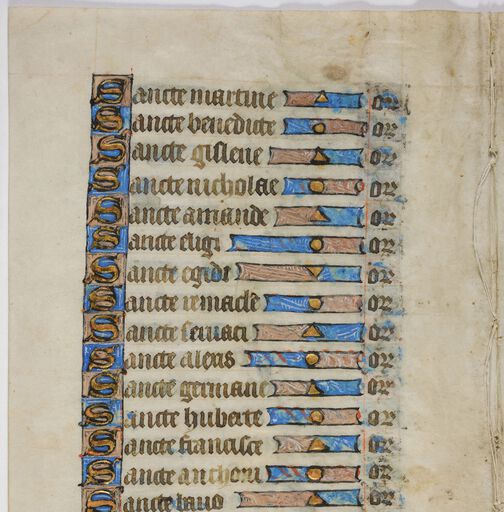 Sancte martine or
Sancte benedicte or
Sancte gislene or
Sancte nicholae or
Sancte amande or
Sancte eligi or
Sancte egidi or
Sancte remacle or
Sancte servaci or
Sancte alexis or
Sancte germane or
Sancte huberte or
Sancte francisce or
Sancte anthoni or
Sancte bavo or